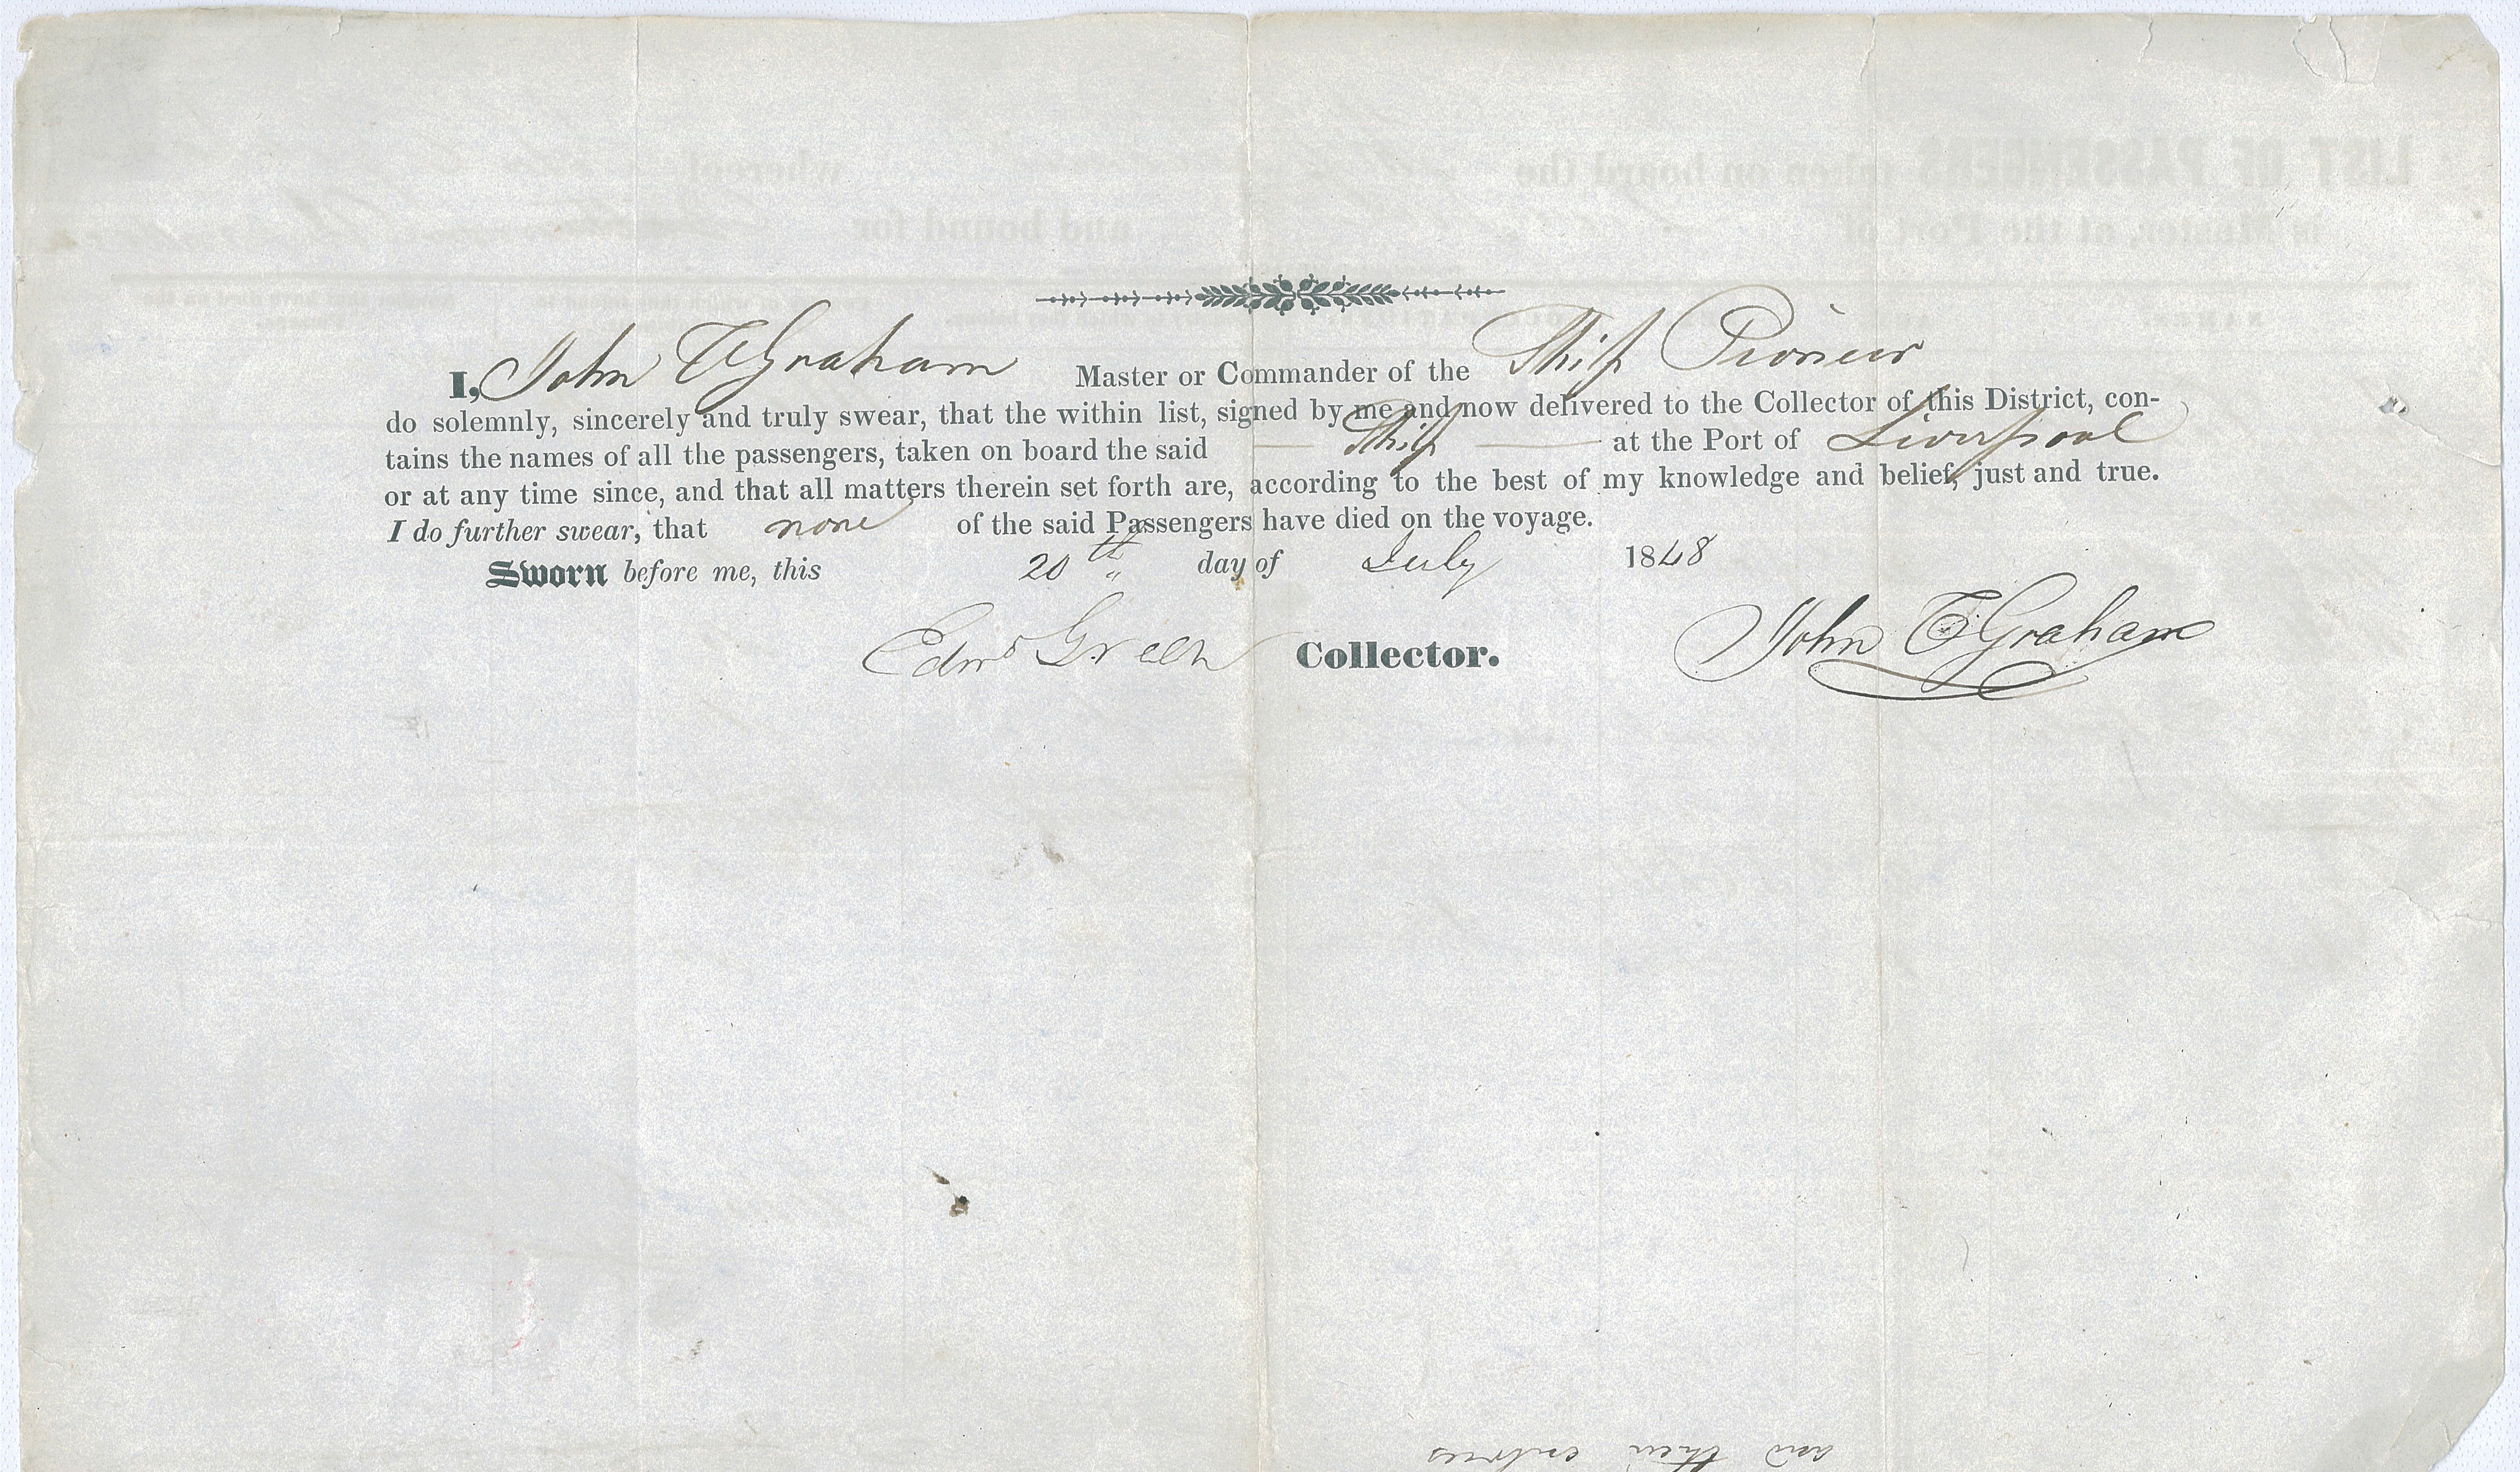 I, John T Graham Master or Commander of the Ship Pioneer
do solemnly, sincerely and truly swear, that the within list, signed by me and now delivered to the Collector of this District, con-
tains the names of all the passengers, taken on board the said — Ship — at the Port of Liverpool
or at any time since, and that all matters therein set forth are, according to the best of my knowledge and belief, just and true.
I do further swear, that none of the said Passengers have died on the voyage.
Sworn before me, this 20th day of July 1848
Edwd Green Collector. John T Graham
LIST OF PASSENGERS taken on board the whereof
is Master, at the Port of and bound for